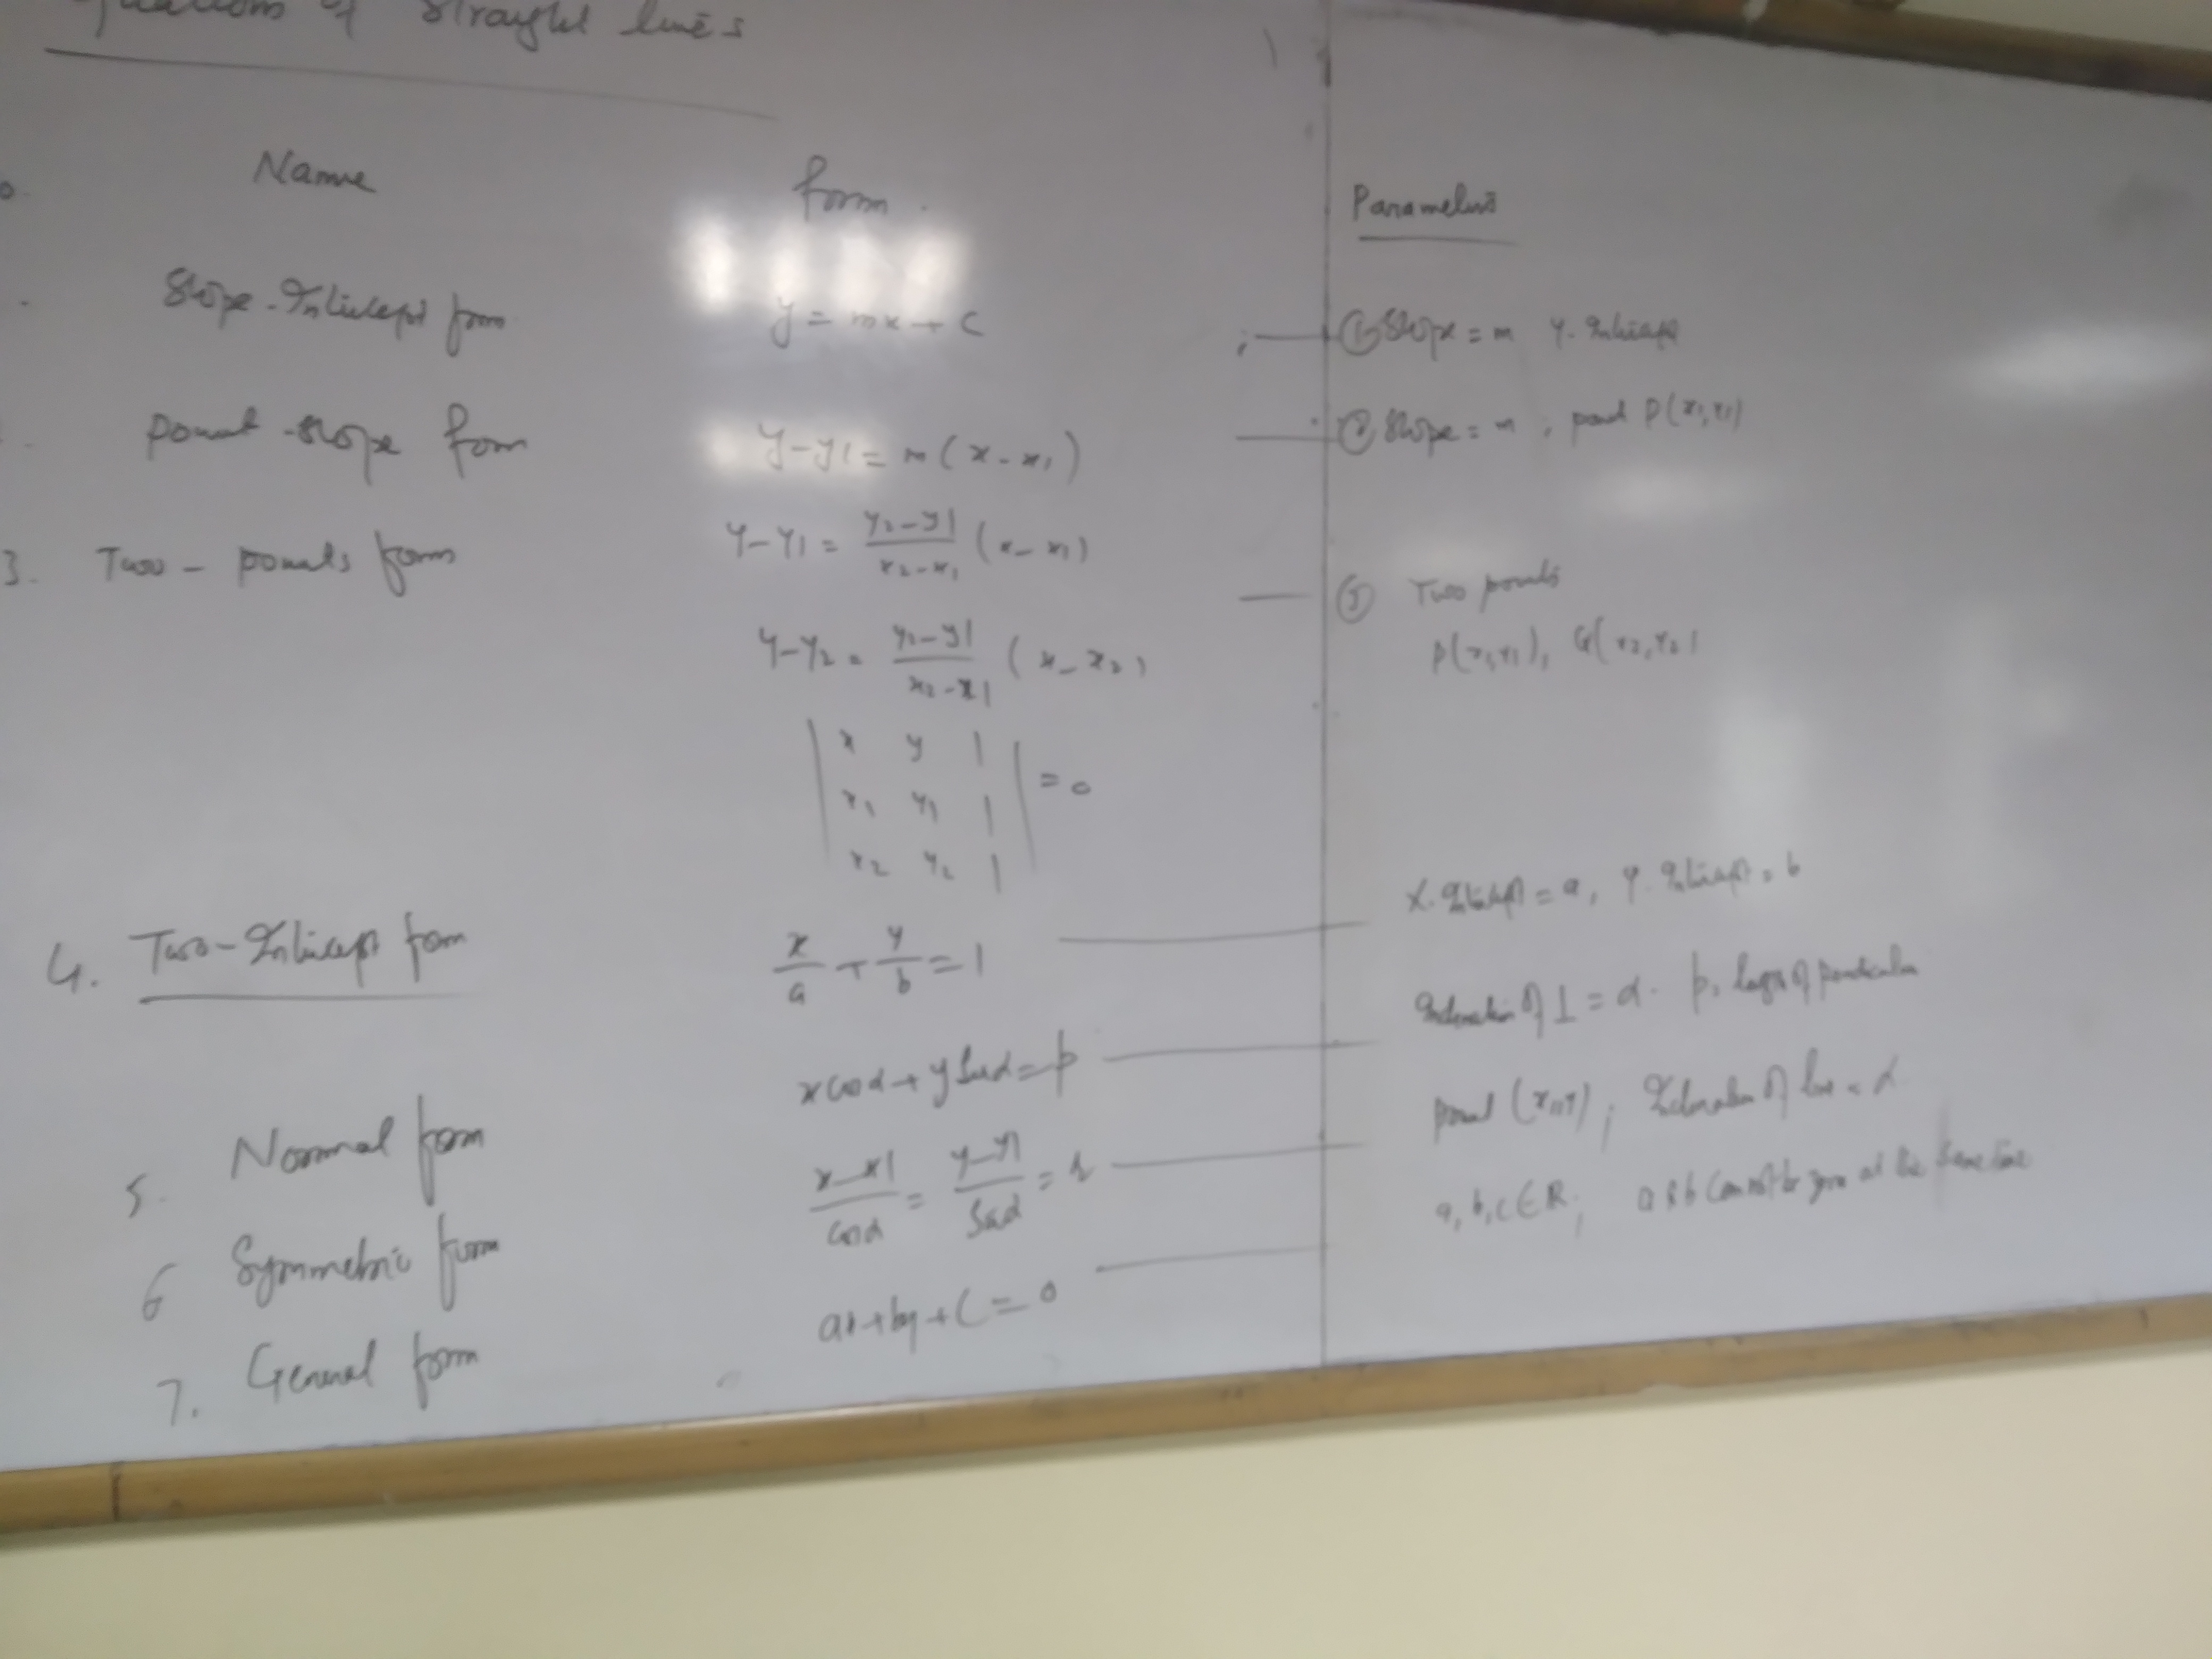 Equations of Straight lines
Name form. Parameters
Slope-Intercept form y = mx + c ① Slope = m Y-Intercept
Point-slope form y-y1 = m(x-x1) ② Slope = m, point P(x1,y1)
3. Two-points form Y-Y1 = y2-y1/x2-x1 (x-x1) ③ Two points
P(x1,y1), Q(x2,y2)
Y-Y2 = y2-y1/x2-x1 (x-x2)
| x y 1 |
| x1 y1 1 | = 0
| x2 y2 1 |
4. Two-Intercept form x/a + y/b = 1 X-Intercept = a, Y-Intercept = b
5. Normal form x cosα + y sinα = p Inclination of ⊥ = α. p, length of perpendicular
6 Symmetric form x-x1/cosα = y-y1/sinα = r point (x1,y1), Inclination of line = α
7. General form ax+by+c = 0 a, b, c ∈ R; a & b cannot be zero at the same time